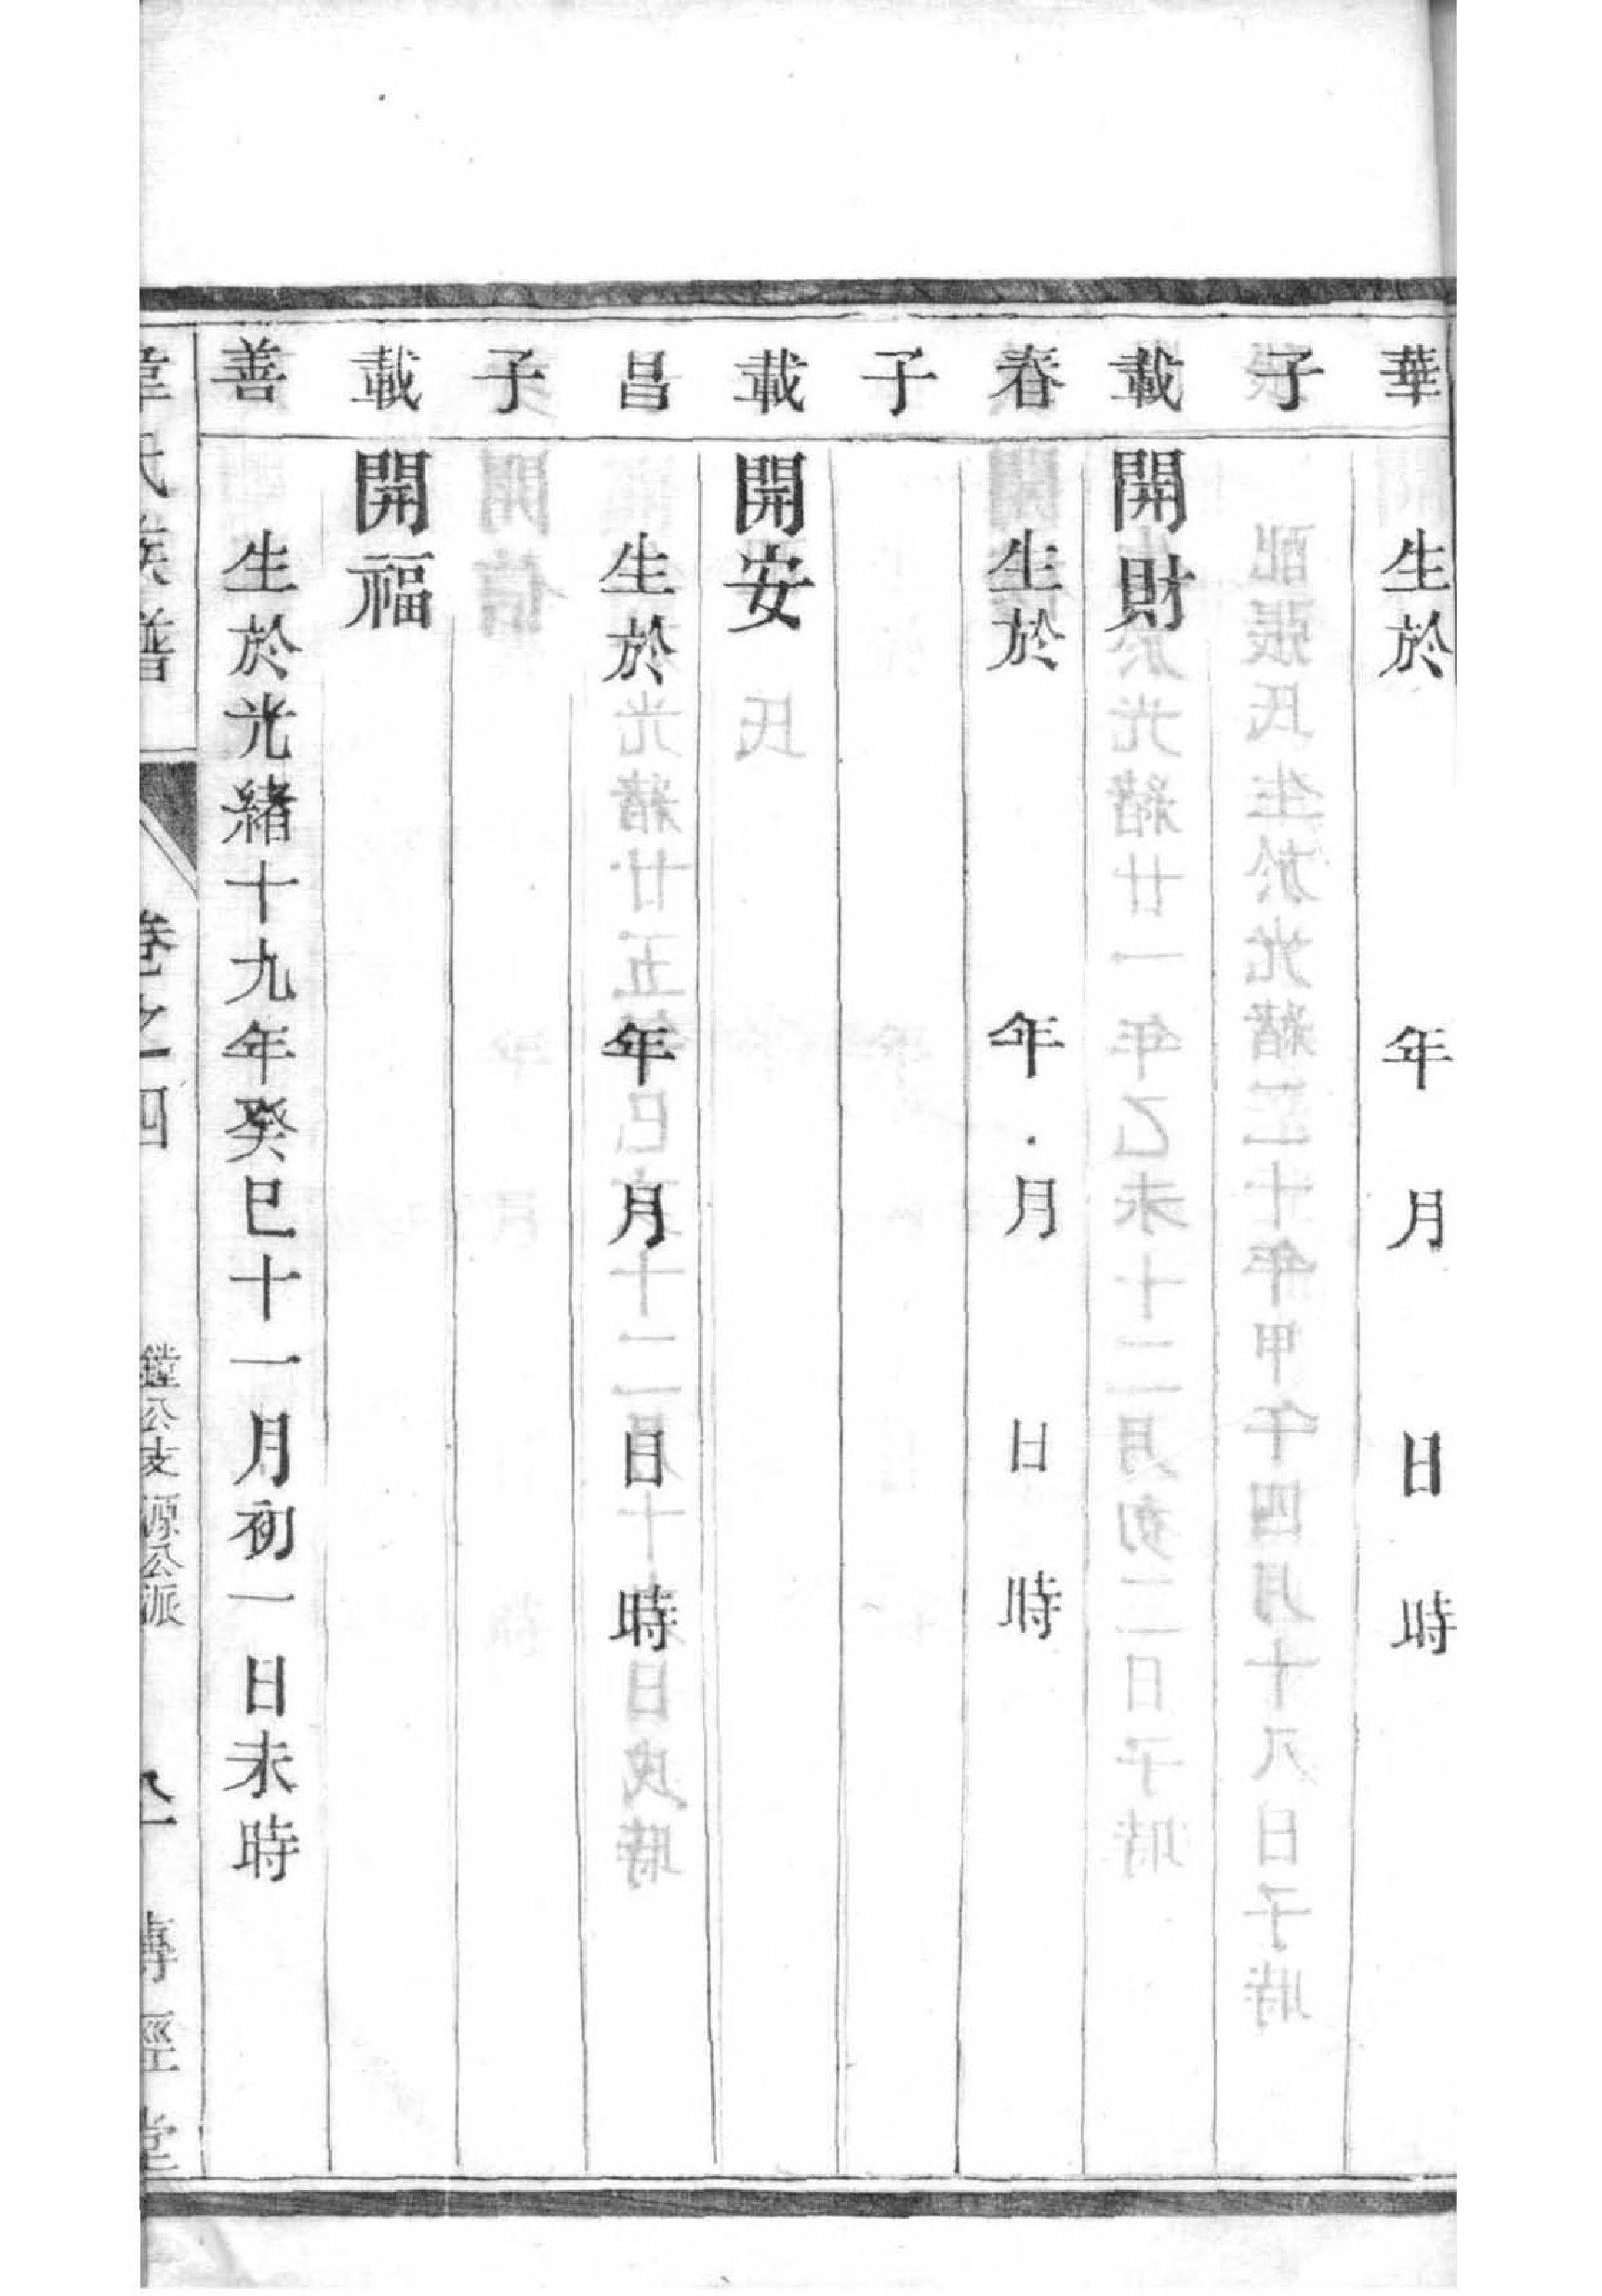 華　生於　年　月　日　時
子
載　開財
春　生於　年　月　日　時
子
載　開安
昌　生於　年　月　日　時
子
載　開福
善　生於光緒十九年癸巳十一月初一日未時
韋氏族譜　卷之四　鏜公支源公派　傳經堂